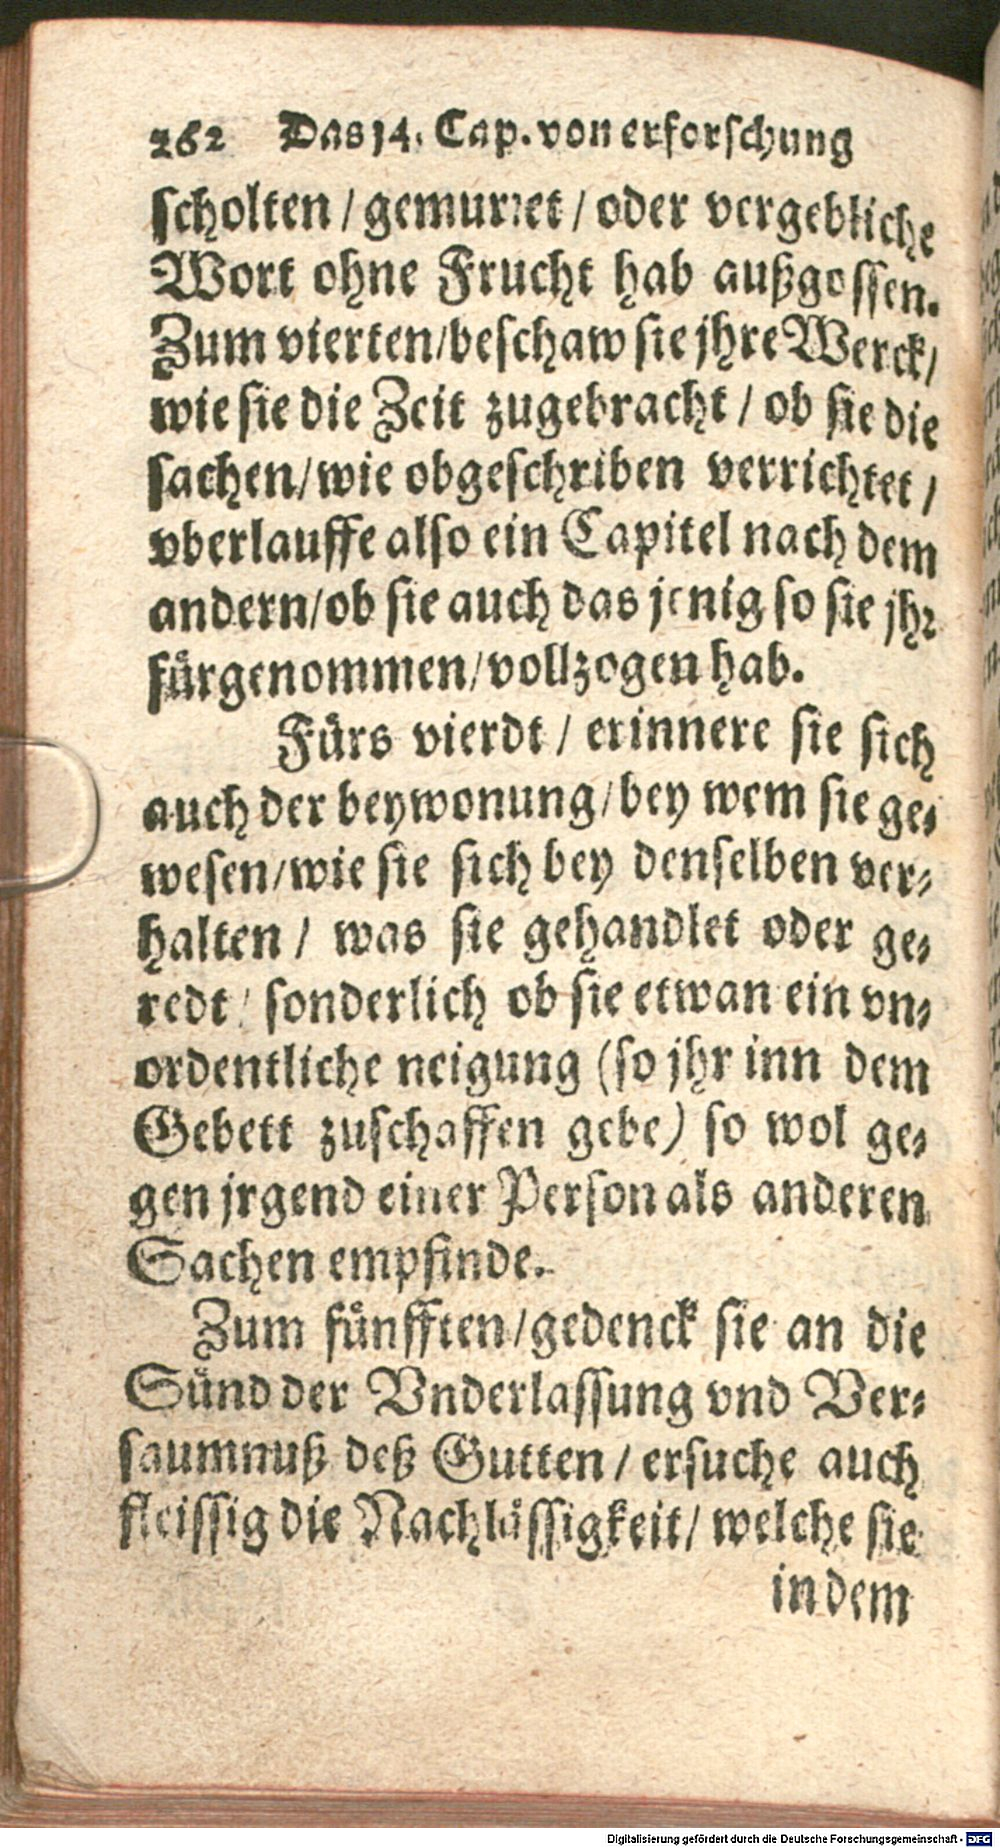 262 Das 14. Cap. von erforschung
scholten / gemurret / oder vergebliche
Wort ohne Frucht hab außgossen.
Zum vierten/beschaw sie jhre Werck/
wie sie die Zeit zugebracht / ob sie die
sachen/wie obgeschriben verrichtet /
vberlauffe also ein Capitel nach dem
andern/ob sie auch das jenig so sie jhr
fürgenommen/vollzogen hab.
Fürs vierdt / erinnere sie sich
auch der beywonung/bey wem sie ge-
wesen/wie sie sich bey denselben ver-
halten / was sie gehandlet oder ge-
redt / sonderlich ob sie etwan ein vn-
ordentliche neigung (so jhr inn dem
Gebett zuschaffen gebe) so wol ge-
gen jrgend einer Person als anderen
Sachen empfinde.
Zum fünfften/gedenck sie an die
Sünd der Vnderlassung vnd Ver-
saumnuß deß Gutten / ersuche auch
fleissig die Nachlässigkeit/ welche sie
in dem
Digitalisierung gefördert durch die Deutsche Forschungsgemeinschaft - DFG